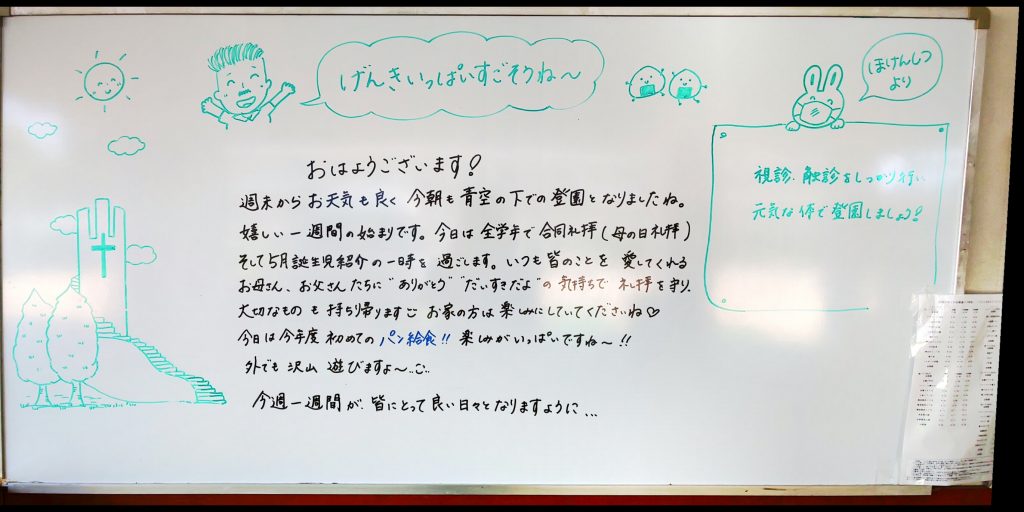 げんきいっぱいすごそうね～
ほけんしつ
より
視診、触診をしっかり行い
元気な体で登園しましょう!
おはようございます!
週末からお天気も良く 今朝も青空の下での登園となりましたね。
嬉しい一週間の始まりです。今日は全学年で合同礼拝(母の日礼拝)
そして5月誕生児紹介の一時を過ごします。いつも皆のことを愛してくれる
お母さん、お父さんたちに"ありがとう""だいすきだよ"の気持ちで礼拝を守り、
大切なものも持ち帰ります お家の方は楽しみにしていてくださいね♡
今日は今年度初めてのパン給食!! 楽しみがいっぱいですね～!!
外でも沢山遊びますよ～
今週一週間が、皆にとって良い日々となりますように...